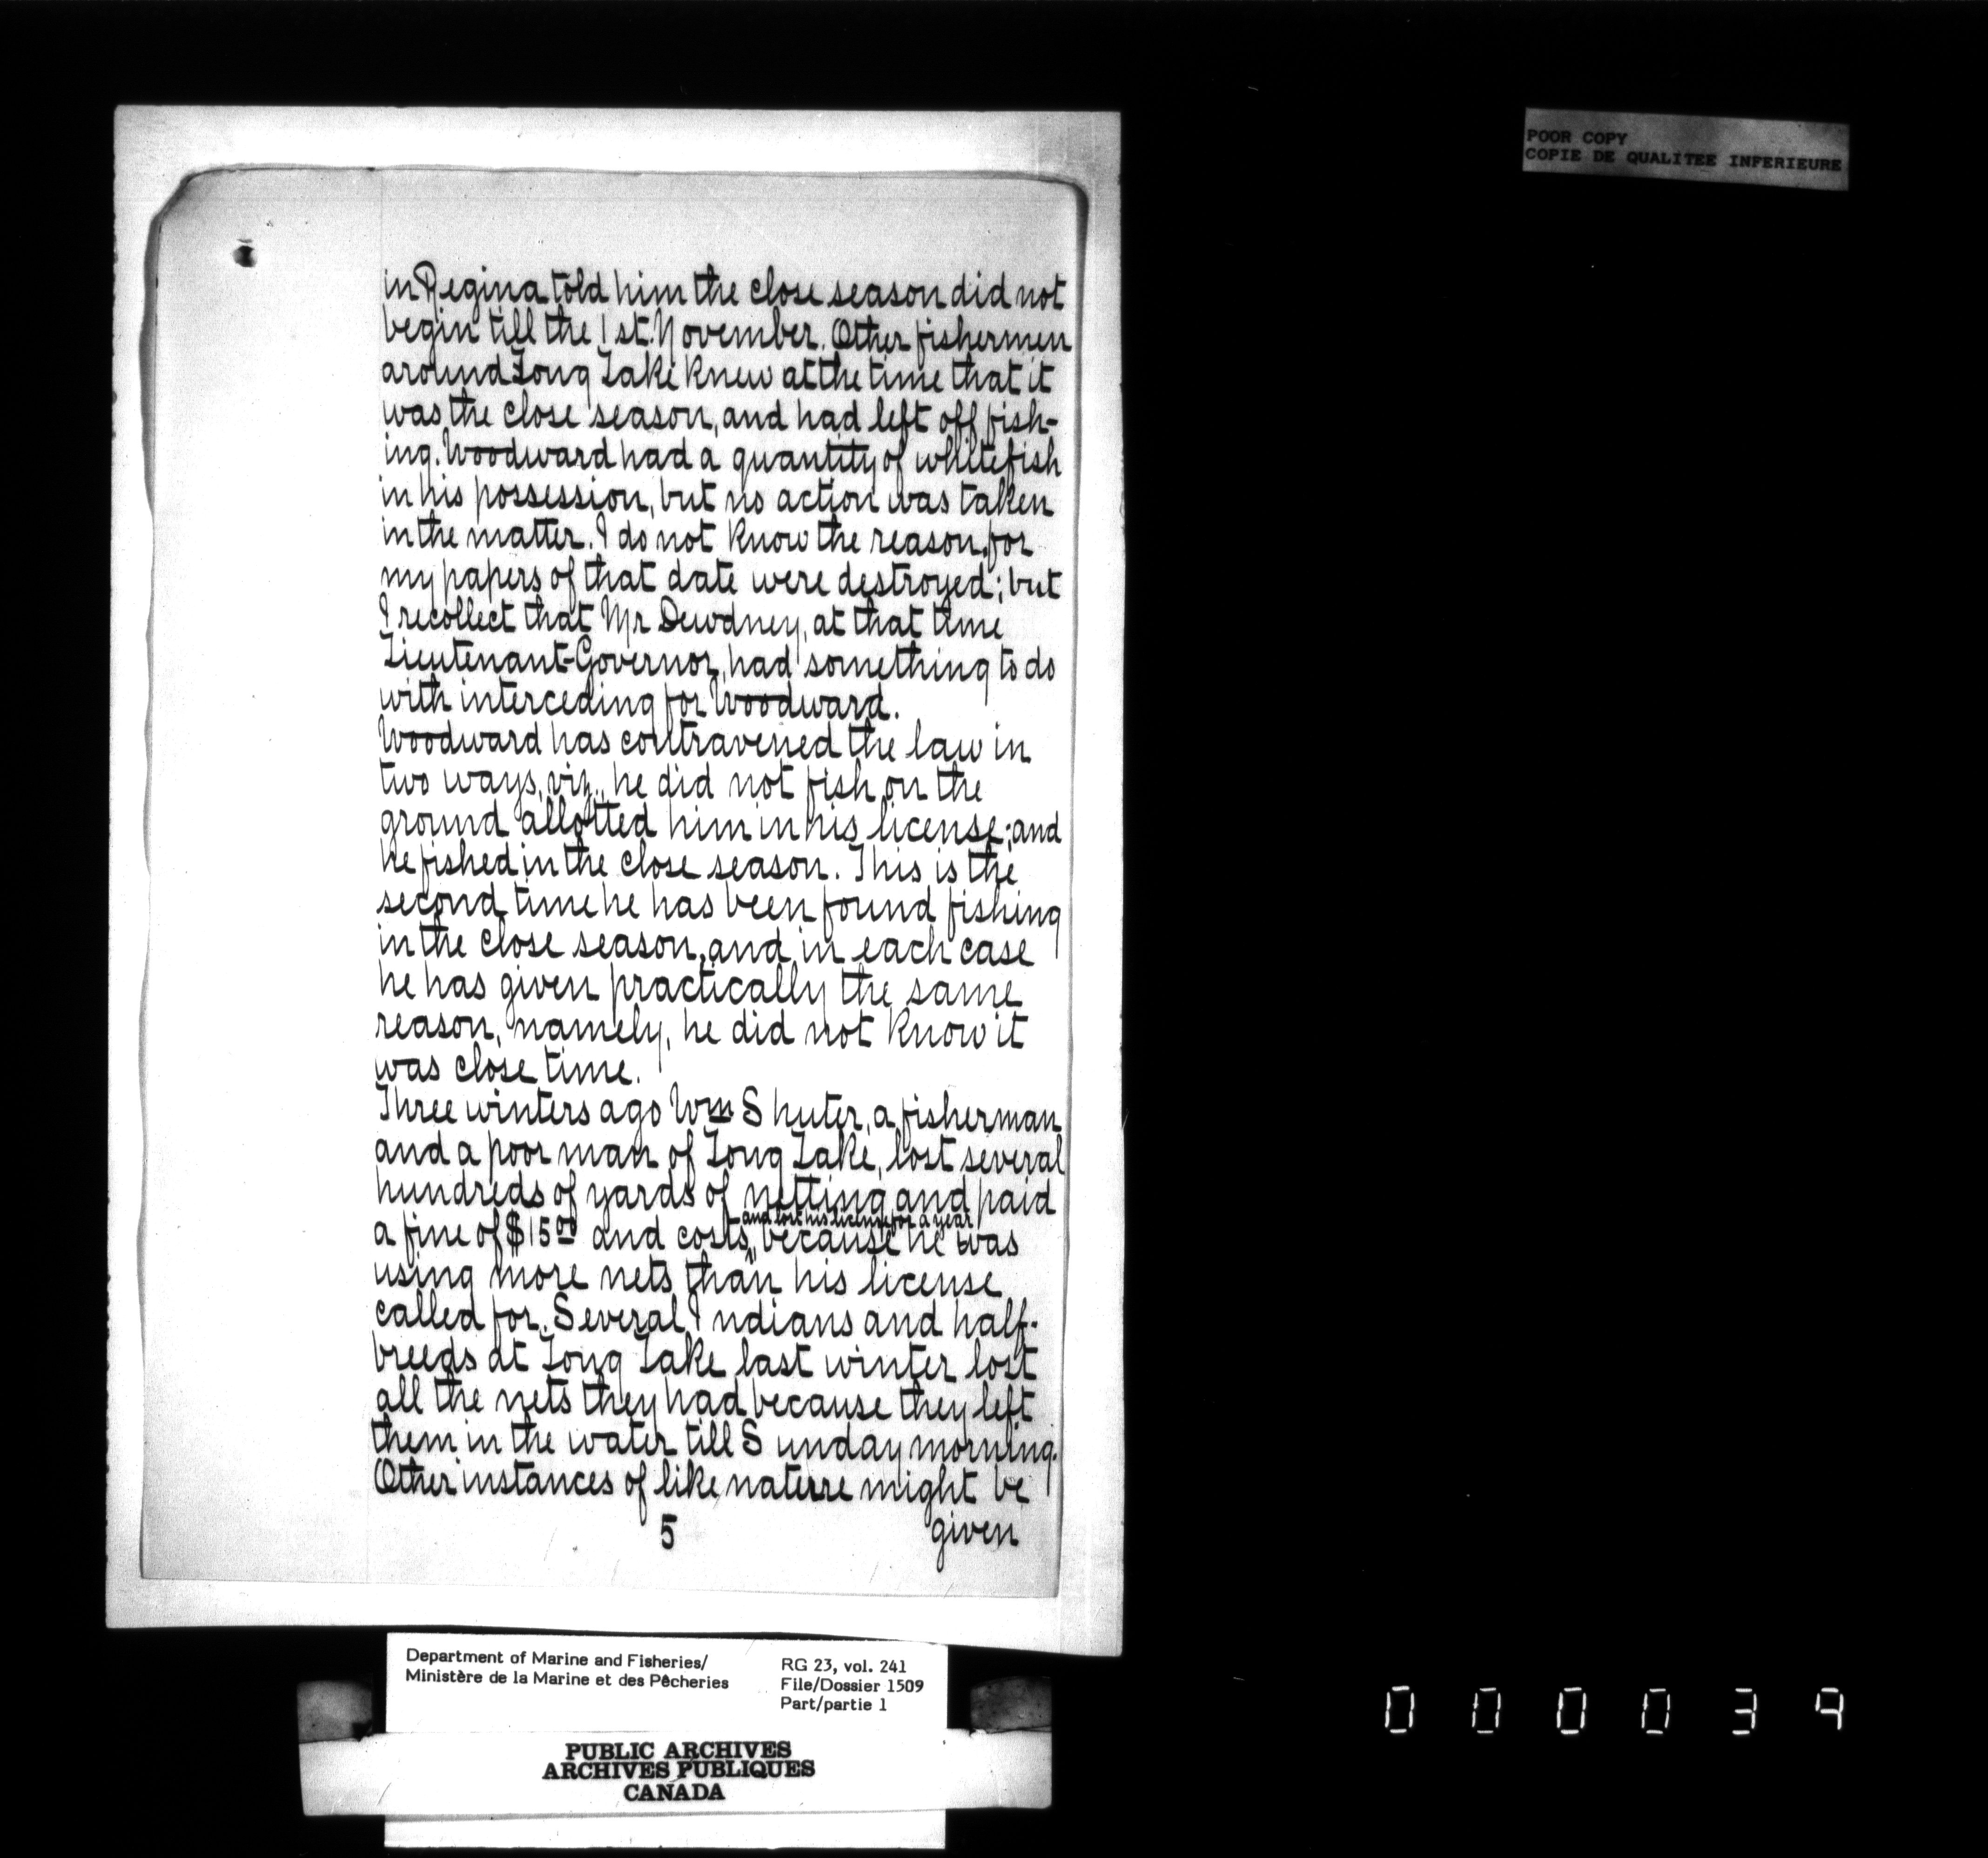 POOR COPY
COPIE DE QUALITEE INFERIEURE
in Regina told him the close season did not
begin till the 1st. November. Other fishermen
around Long Lake knew at the time that it
was the close season, and had left off fish-
ing. Woodward had a quantity of whitefish
in his possession, but no action was taken
in the matter. I do not know the reason, for
my papers of that date were destroyed; but
I recollect that Mr Dewdney, at that time
Lieutenant-Governor, had something to do
with interceding for Woodward.
Woodward has contravened the law in
two ways, viz., he did not fish on the
ground allotted him in his license; and
he fished in the close season. This is the
second time he has been found fishing
in the close season, and in each case
he has given practically the same
reason, namely, he did not know it
was close time.
Three winters ago Wm Shuter, a fisherman
and a poor man of Long Lake, lost several
hundreds of yards of netting and paid
and lost his license for a year
a fine of $15 00 and costs, because he was
using more nets than his license
called for. Several Indians and half-
breeds at Long Lake last winter lost
all the nets they had because they left
them in the water till Sunday morning.
Other instances of like nature might be
5 given
Department of Marine and Fisheries/
Ministère de la Marine et des Pêcheries
RG 23, vol. 241
File/Dossier 1509
Part/partie 1
PUBLIC ARCHIVES
ARCHIVES PUBLIQUES
CANADA
000039